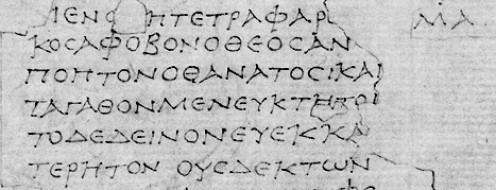 ΛΕΝΟ ΗΤΕΤΡΑΦΑΡ ΜΑ
ΚΟϹΑΦΟΒΟΝΟΘΕΟϹΑΝ
ΠΟΠΤΟΝΟΘΑΝΑΤΟϹΚΑΙ
ΤΑΓΑΘΟΝΜΕΝΕΥΚΤΗΤΟ
ΤΟΔΕΔΕΙΝΟΝΕΥΕΚΚΑ
ΤΕΡΗΤΟΝ ΟΥϹΔΕΚΤΩΝ